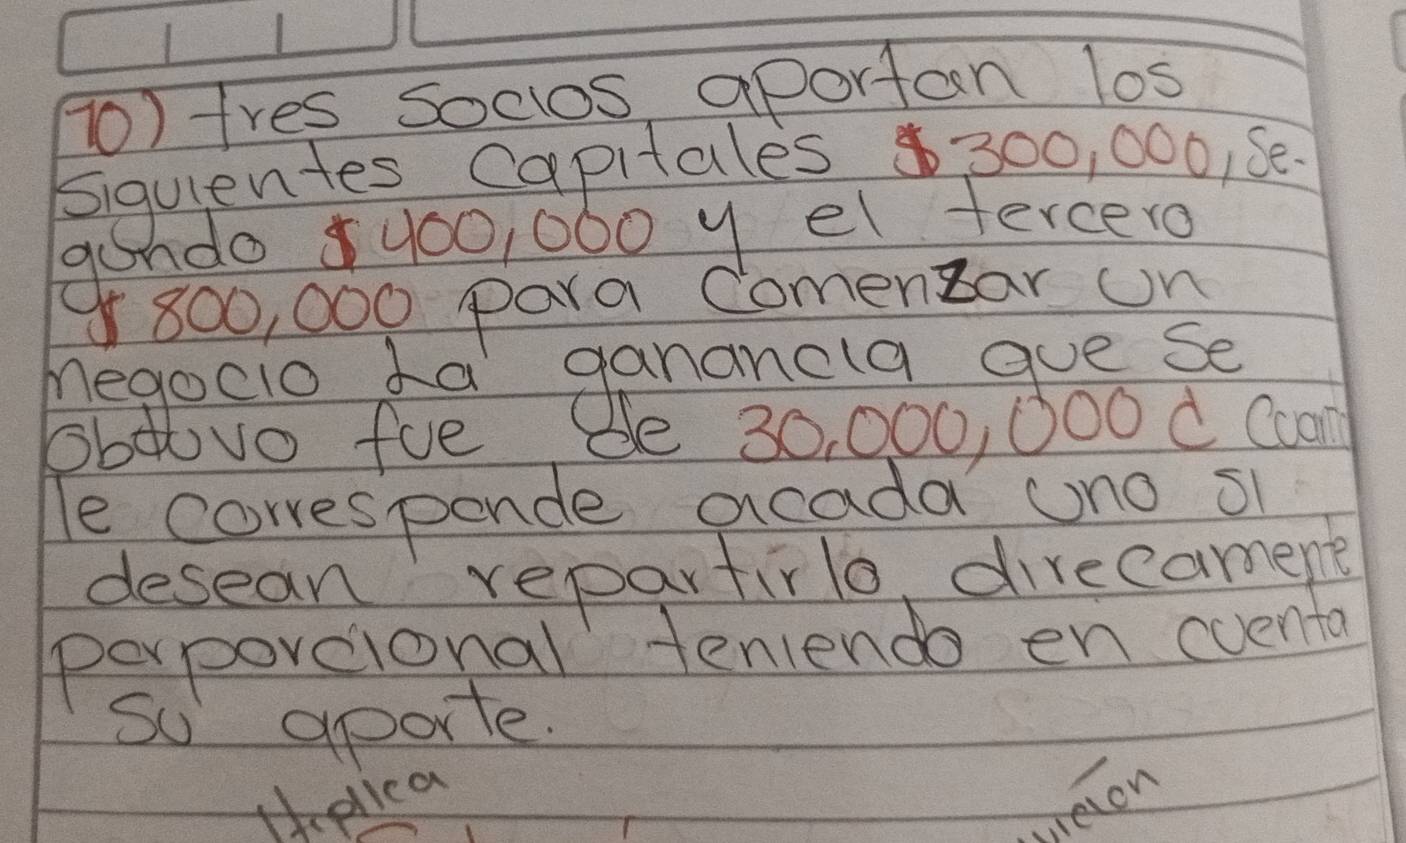 10) tres socios aportan los
siguientes capitales $300,000, Se-
gundo $400,000 y el tercero
$800,000 para comenzar un
negocio La ganancia que se
obtuvo fue de 30,000,000 ¿
le corresponde acada uno si
desean repartirlo direcamente
porporcional teniendo en cuenta
su aporte.